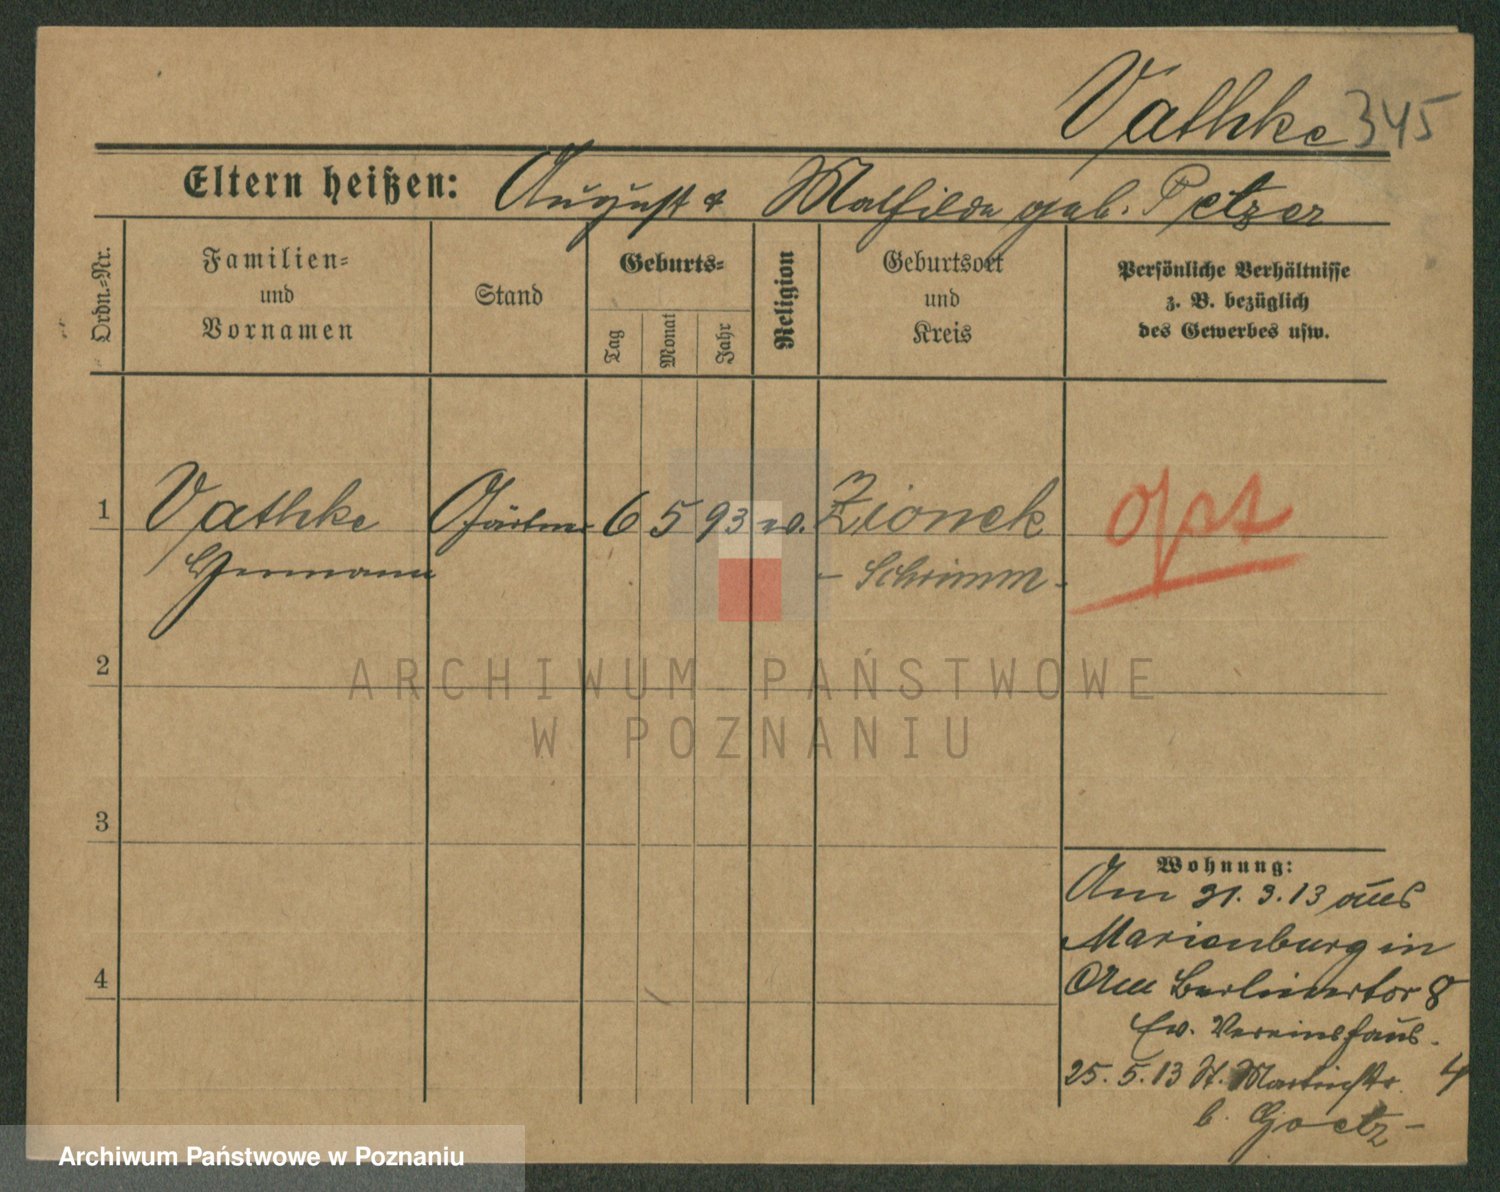 Vathke 345
Eltern heißen: August & Mathilde geb. Petzer
Ordn.-Nr.
Familien-
und
Vornamen
Stand
Geburts-
Tag
Monat
Jahr
Religion
Geburtsort
und
Kreis
Persönliche Verhältnisse
z. B. bezüglich
des Gewerbes usw.
1 Vathke Gärtner 6 5 93 ev. Zionek opt
Hermann - Schrimm -
2
3
4
Wohnung:
Am 31. 3. 13 aus
Marienburg in
Am Berlinertor 8
Ev. Vereinshaus.
25. 5. 13 St. Martinstr. 4
b. Goetz -
ARCHIWUM PAŃSTWOWE
W POZNANIU
Archiwum Państwowe w Poznaniu